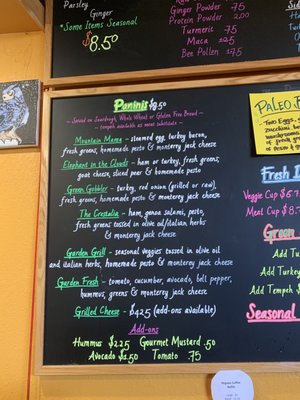 Parsley
Ginger
*Some Items Seasonal
$8.50
Ginger Powder .75
Protein Powder 2.00
Turmeric .75
Maca .25
Bee Pollen .75
Paninis $9.50
- Served on Sourdough, Whole Wheat or Gluten Free Bread -
- tempeh available as meat substitute -
Mountain Mama - steamed egg, turkey bacon,
fresh greens, homemade pesto & monterey jack cheese
Elephant in the Clouds - ham or turkey, fresh greens,
goat cheese, sliced pear & homemade pesto
Green Gobbler - turkey, red onion (grilled or raw),
fresh greens, homemade pesto & monterey jack cheese
The Crestalia - ham, genoa salami, pesto,
fresh greens tossed in olive oil/italian herbs
& monterey jack cheese
Garden Grill - seasonal veggies tossed in olive oil
and italian herbs, homemade pesto & monterey jack cheese
Garden Fresh - tomato, cucumber, avocado, bell pepper,
hummus, greens & monterey jack cheese
Grilled Cheese - $4.25 (add-ons available)
Add-ons
Hummus $2.25 Gourmet Mustard .50
Avocado $1.50 Tomato .75
PALEO
Two Eggs
Fresh
Veggie Cup $6.7
Meat Cup $8.
Green
Add Tu
Add Turkey
Add Tempeh $
Seasonal